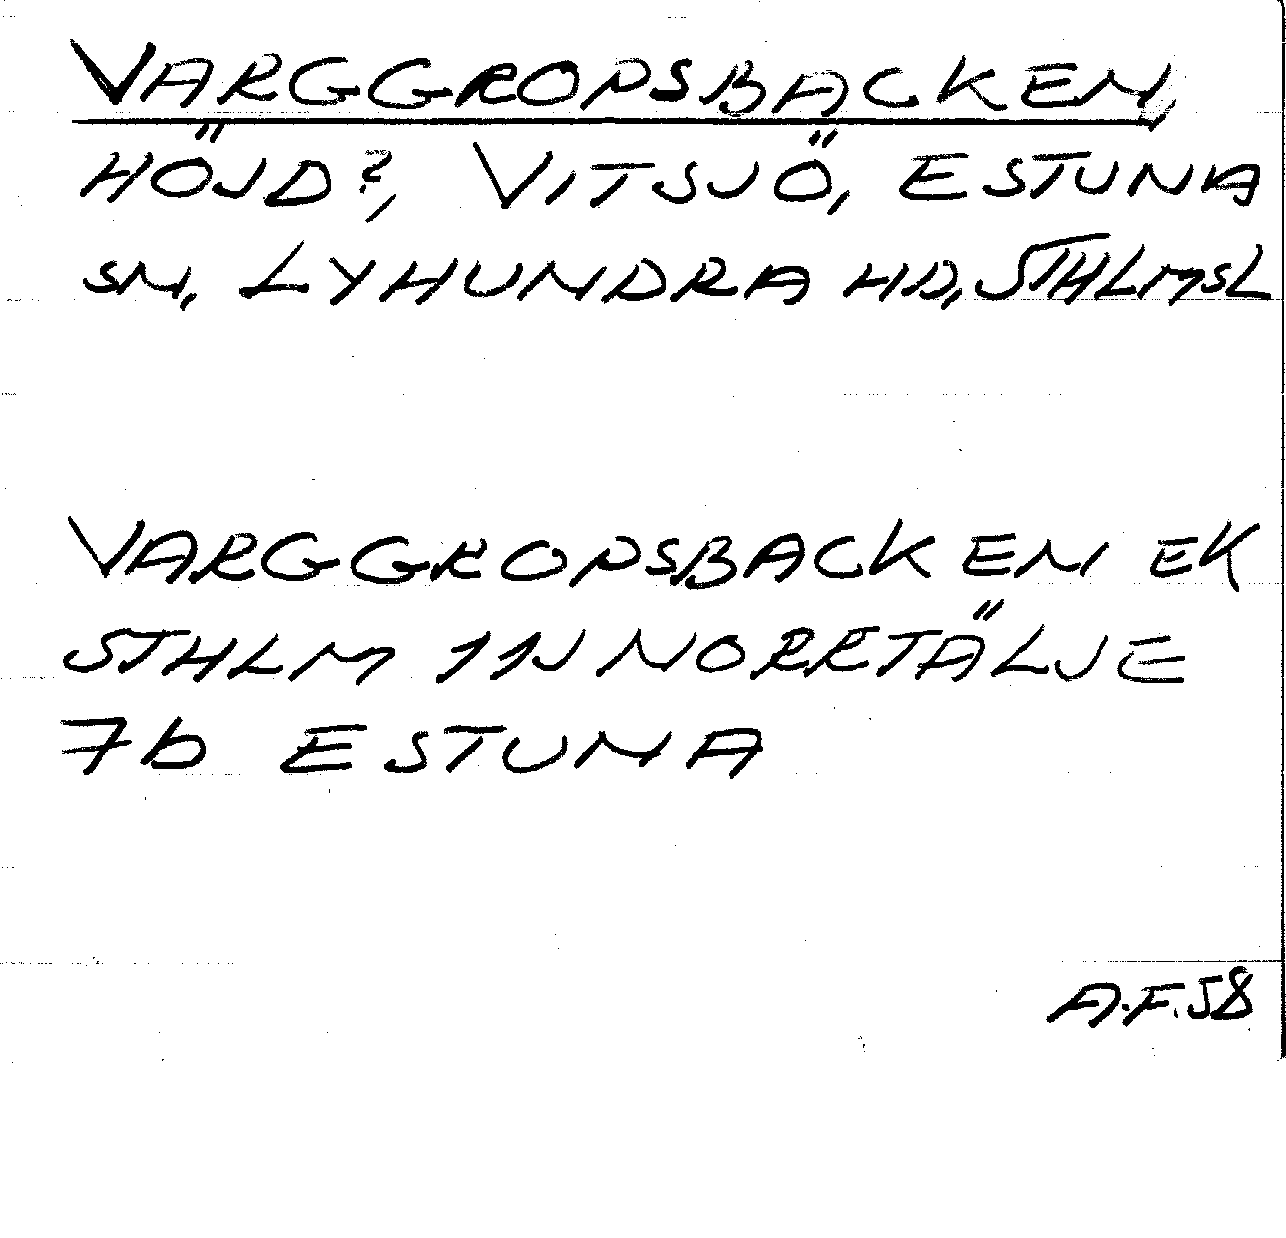 VARGGROPSBACKEN,
HÖJD?, VITSJÖ, ESTUNA
SN, LYHUNDRA HD, STHLMSL
VARGGROPSBACKEN EK
STHLM 11J NORRTÄLJE
7b ESTUNA
A.F.58